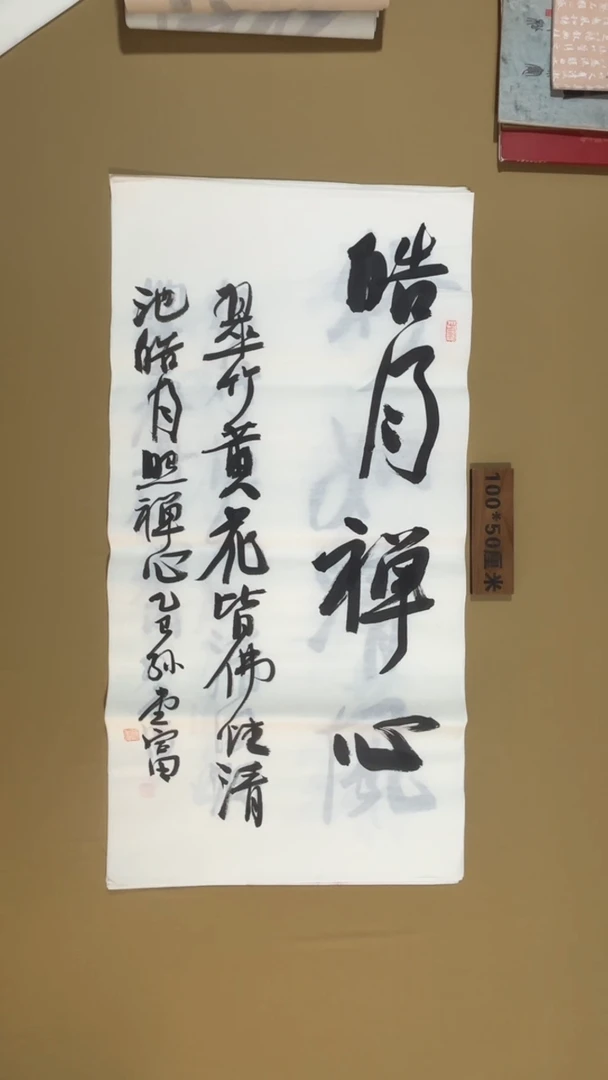 皓月禅心
翠竹黄花皆佛性清
池皓月照禅心乙巳孙堂富
100*50厘米